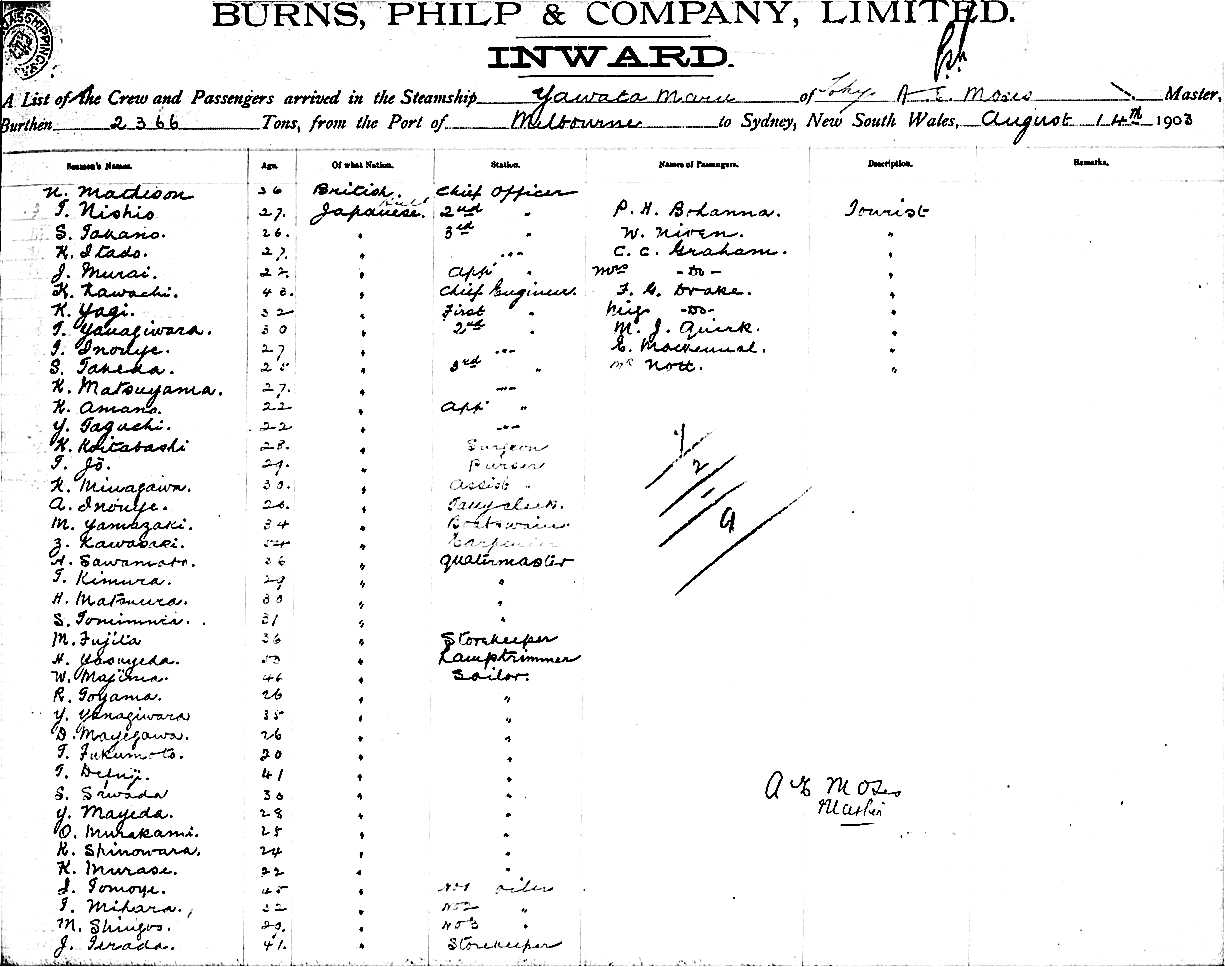 BURNS, PHILP & COMPANY, LIMITED.
INWARD.
A List of the Crew and Passengers arrived in the Steamship Yawata Maru of A E Moses Master,
Burthen 2366 Tons, from the Port of Melbourne to Sydney, New South Wales, August 14th 1903
Seamen's Names. Age. Of what Nation. Station. Names of Passengers. Description. Remarks.
N. Mathison 36 British. Chief Officer
T. Nishio 27. Japanese. 2nd " P. H. Bohanna. Tourist
S. Takano. 26. " 3rd " W. Niven. "
K. Itado. 27. " " C. C. Graham. "
J. Murai. 22. " App " Mrs -Do- "
K. Kawachi. 43. " Chief Engineer. F. G. Drake. "
K. Yagi. 32 " First " -Do- "
T. Yanagiwara. 30 " 2nd " M. J. Quirk. "
T. Inouye. 27 " " E. Mackennal. "
S. Takeda. 25 " 3rd " Mr Nott. "
K. Matsuyama. 27. " "
K. Amano. 22 " App "
Y. Taguchi. 22 " "
K. Koitabashi 28. " Surgeon
T. Jō. 29. " Purser
K. Minagawa. 30. " Assist "
A. Inouye. 20. " Tally clerk.
M. Yamazaki. 34 " Boatswain
Z. Kawasaki. 54 " Carpenter
H. Sawamoto. 36 " Quatermaster
T. Kimura. 29 " "
H. Matsuura. 30 " "
S. 31 " "
M. Fujita 36 " Storekeeper
H. Yasuyeda. 50 " Lamptrimmer
W. Majima. 46 " Sailor.
R. Toyama. 26 " "
Y. Yanagiwara 35 " "
D. Mayegawa. 26 " "
T. Fukumoto. 20 " "
T. Deguji. 41 " "
S. Sawada 30 " "
Y. Mayeda. 28 " "
O. Murakami. 25 " "
K. Shinowara. 24 " "
K. Murase. 22 " "
I. Tomoye. 45 " No1 oiler
T. Mihara. 32 " No2 "
M. Shingos. 29. " No3 "
J. Terada. 41. " Storekeeper
1/
2
1
9
A E Moses
Master